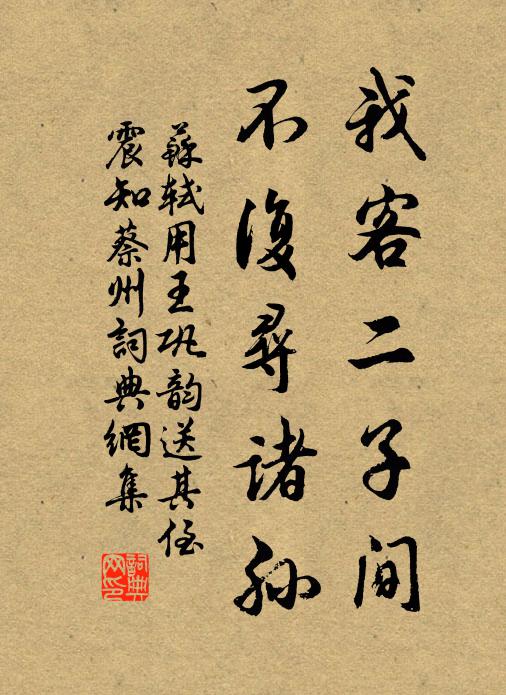 我客二子間
不復尋諸孫
蘇軾用王巩韵送其侄
震知蔡州詞典網集
詞典网印